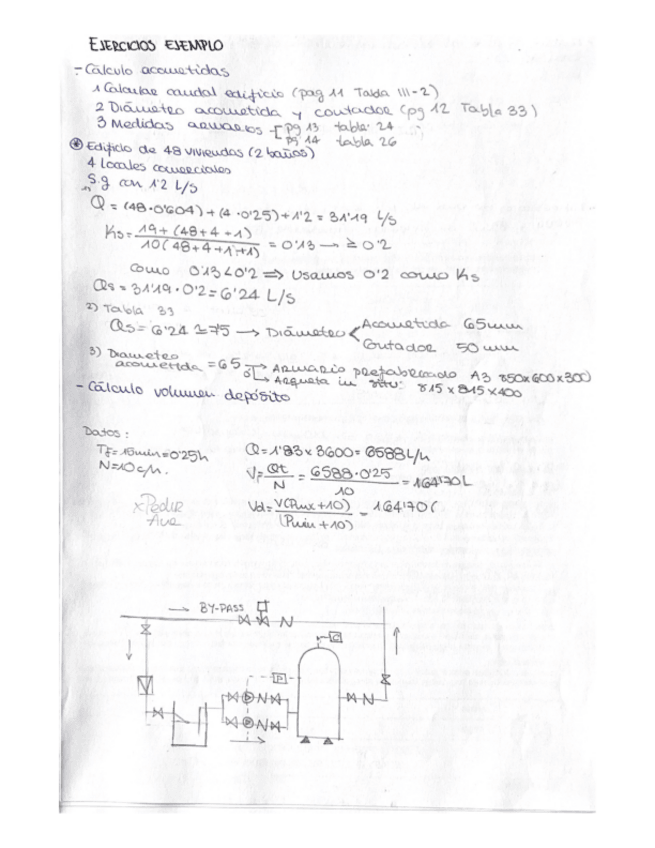 EJERCICIOS EJEMPLO
- Cálculo acometidas
1 Calcular caudal edificio (pag 11 Tabla III-2)
2 Diámetro acometida y contador (pg 12 Tabla 33)
3 Medidas armarios - [ pg 13 tabla 24
pg 14 tabla 26
Edificio de 48 viviendas (2 baños)
4 locales comerciales
S.g con 1'2 L/s
1)
Q = (48·0'604) + (4·0'25) + 1'2 = 31'19 L/s
Ks = 19 + (48+4+1) / 10(48+4+1+1) = 0'13 → ≥ 0'2
Como 0'13 < 0'2 ⇒ Usamos 0'2 como Ks
Qs = 31'19 · 0'2 = 6'24 L/s
2) Tabla 33
Qs = 6'24 ≃ 75 → Diámetro < Acometida 65mm
Contador 50 mm
3) Diametro acometida = 65 → Armario prefabricado A3 850x600x300
ó → Arqueta in situ: 815 x 815 x 400
- Cálculo volumen depósito
Datos:
Tf = 15min = 0'25h
N = 10 c/h.
Q = 1'83 x 3600 = 6588 L/h
V = Qt / N = 6588·0'25 / 10 = 164'70 L
Vd = V(Pmax + 10) / (Pmin + 10) = 164'70 (
BY-PASS
C
P